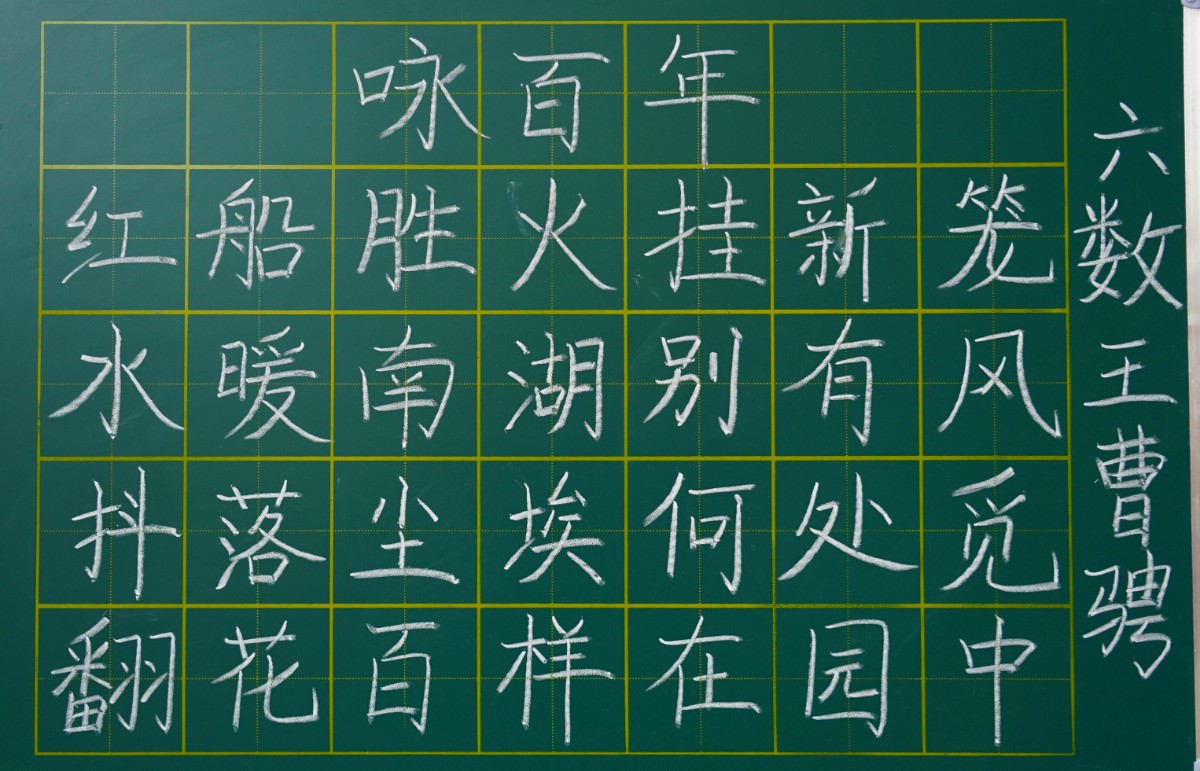 咏百年
红船胜火挂新笼
水暖南湖别有风
抖落尘埃何处觅
翻花百样在园中
六数王曹骋